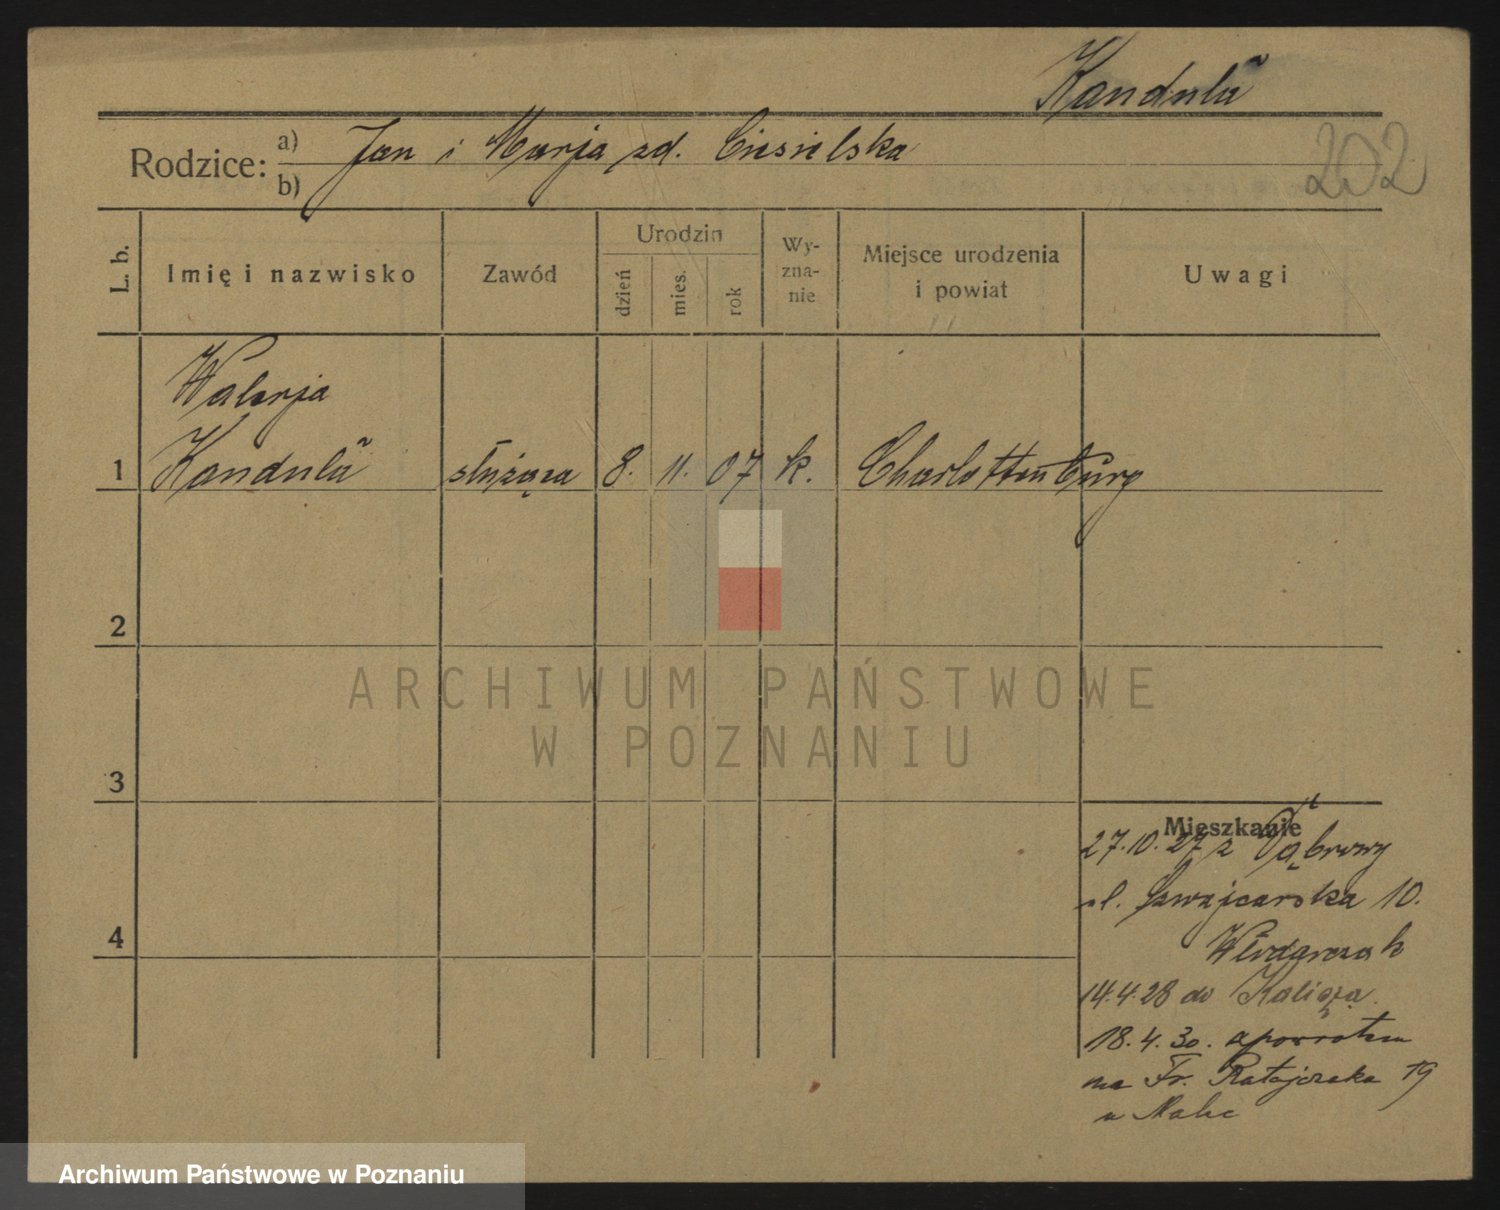 Kandula
Rodzice: a) Jan i Marja zd. Ciesielska
b)
202
L. b.
Imię i nazwisko
Zawód
Urodzin
dzień
mies.
rok
Wy-
zna-
nie
Miejsce urodzenia
i powiat
Uwagi
Walerja
1 Kandula służąca 8. 11. 07 k. Charlottenburg
2
3
4
Mieszkanie
27.10.27 z Dąbrowy
ul. Szwajcarska 10.
Włodarczak
14.4.28 do Kalisza.
18.4.30. z powrotem
na Fr. Ratajczaka 19
u
ARCHIWUM PAŃSTWOWE
W POZNANIU
Archiwum Państwowe w Poznaniu